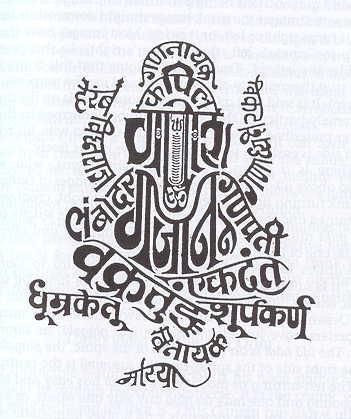 गणनायक
कपिल
हेरंब
विघ्नराज
गणेश
ॐ
लंबोदर
गजानन
गणपती
वक्रतुंड
एकदंत
धूम्रकेतू
शूर्पकर्ण
विनायक
मोरया